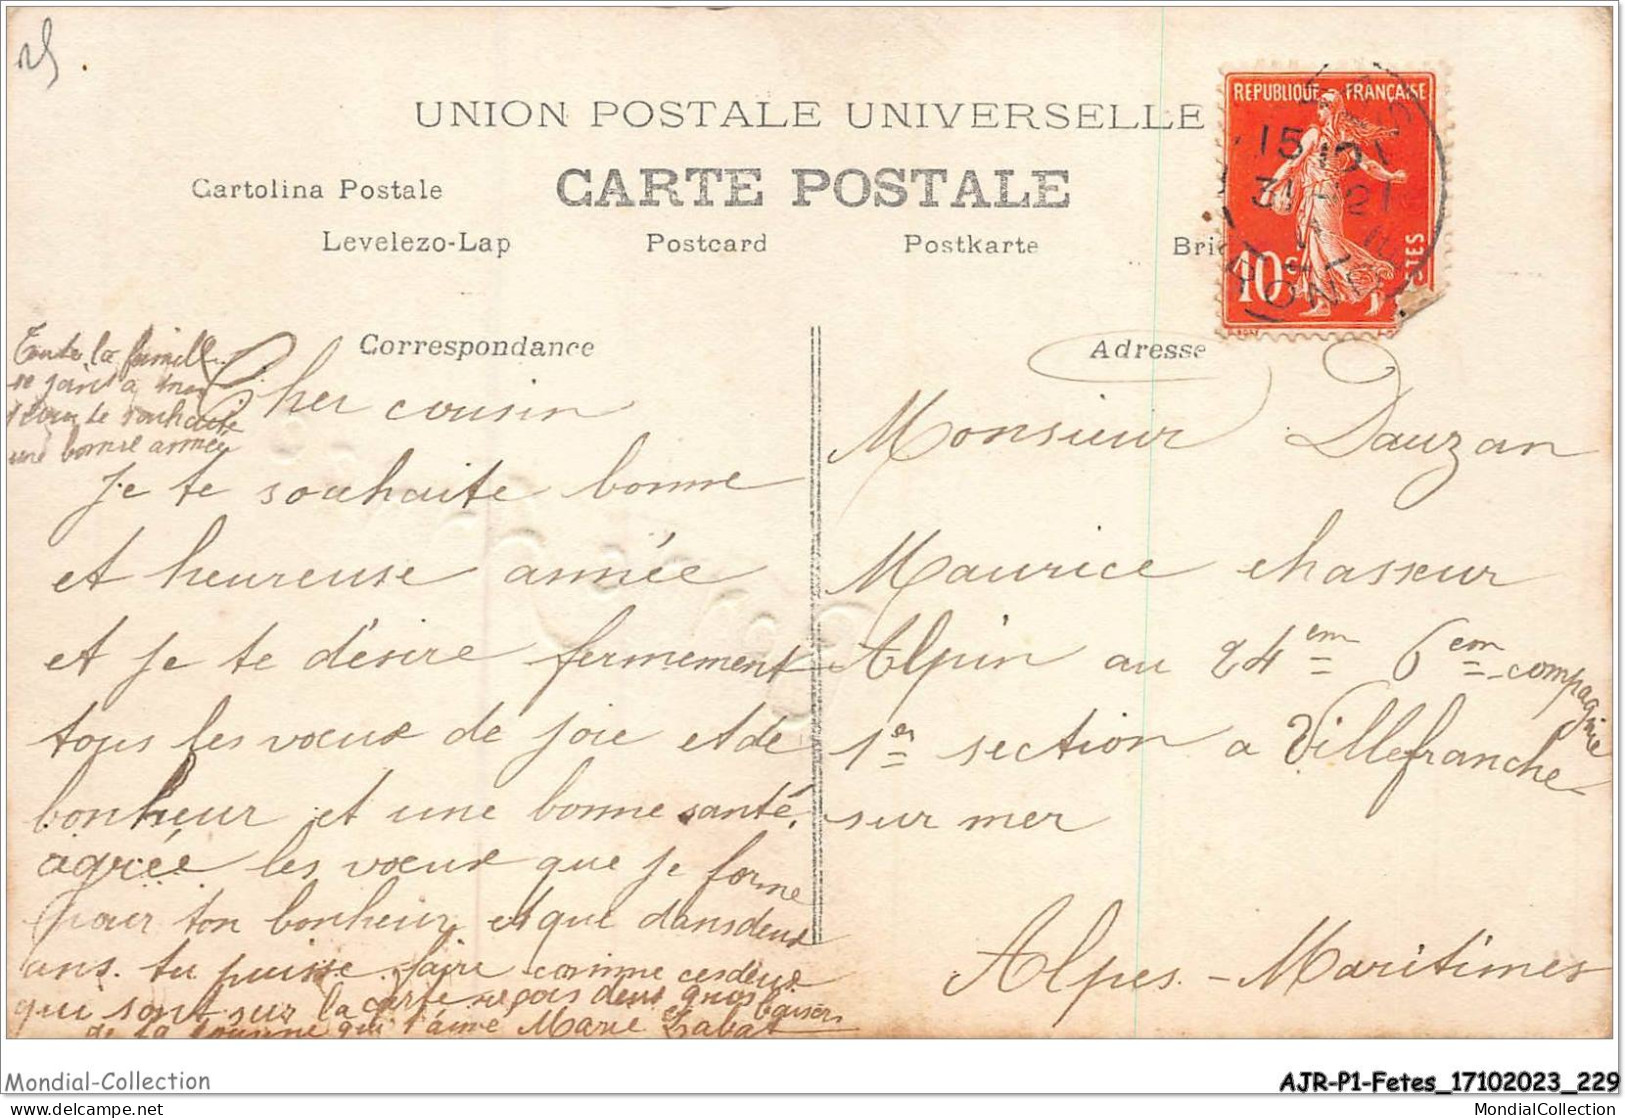 UNION POSTALE UNIVERSELLE
Cartolina Postale CARTE POSTALE
Levelezo-Lap Postcard Postkarte Bri
REPUBLIQUE FRANÇAISE
15
31
10 c
Correspondance
Toute la famille
se joint a moi
pour te souhaité
une bonne année
Cher cousin
Je te souhaite bonne
et heureuse année
et je te désire fermement
tous les vœux de joie et de
bonheur et une bonne santé.
agrée les vœux que je forme
pour ton bonheur et que dans deux
ans. tu puisse faire comme ces deux
qui sont sur la carte reçois deux gros baisers
de la cousine qui t'aime Marie Labat
Adresse
Monsieur Dauzan
Maurice chasseur
Alpin au 24 em 6 em compagnie
1 er section a Villefranche
sur mer
Alpes-Maritimes
Mondial-Collection
AJR-P1-Fetes_17102023_229
text
MondialCollection